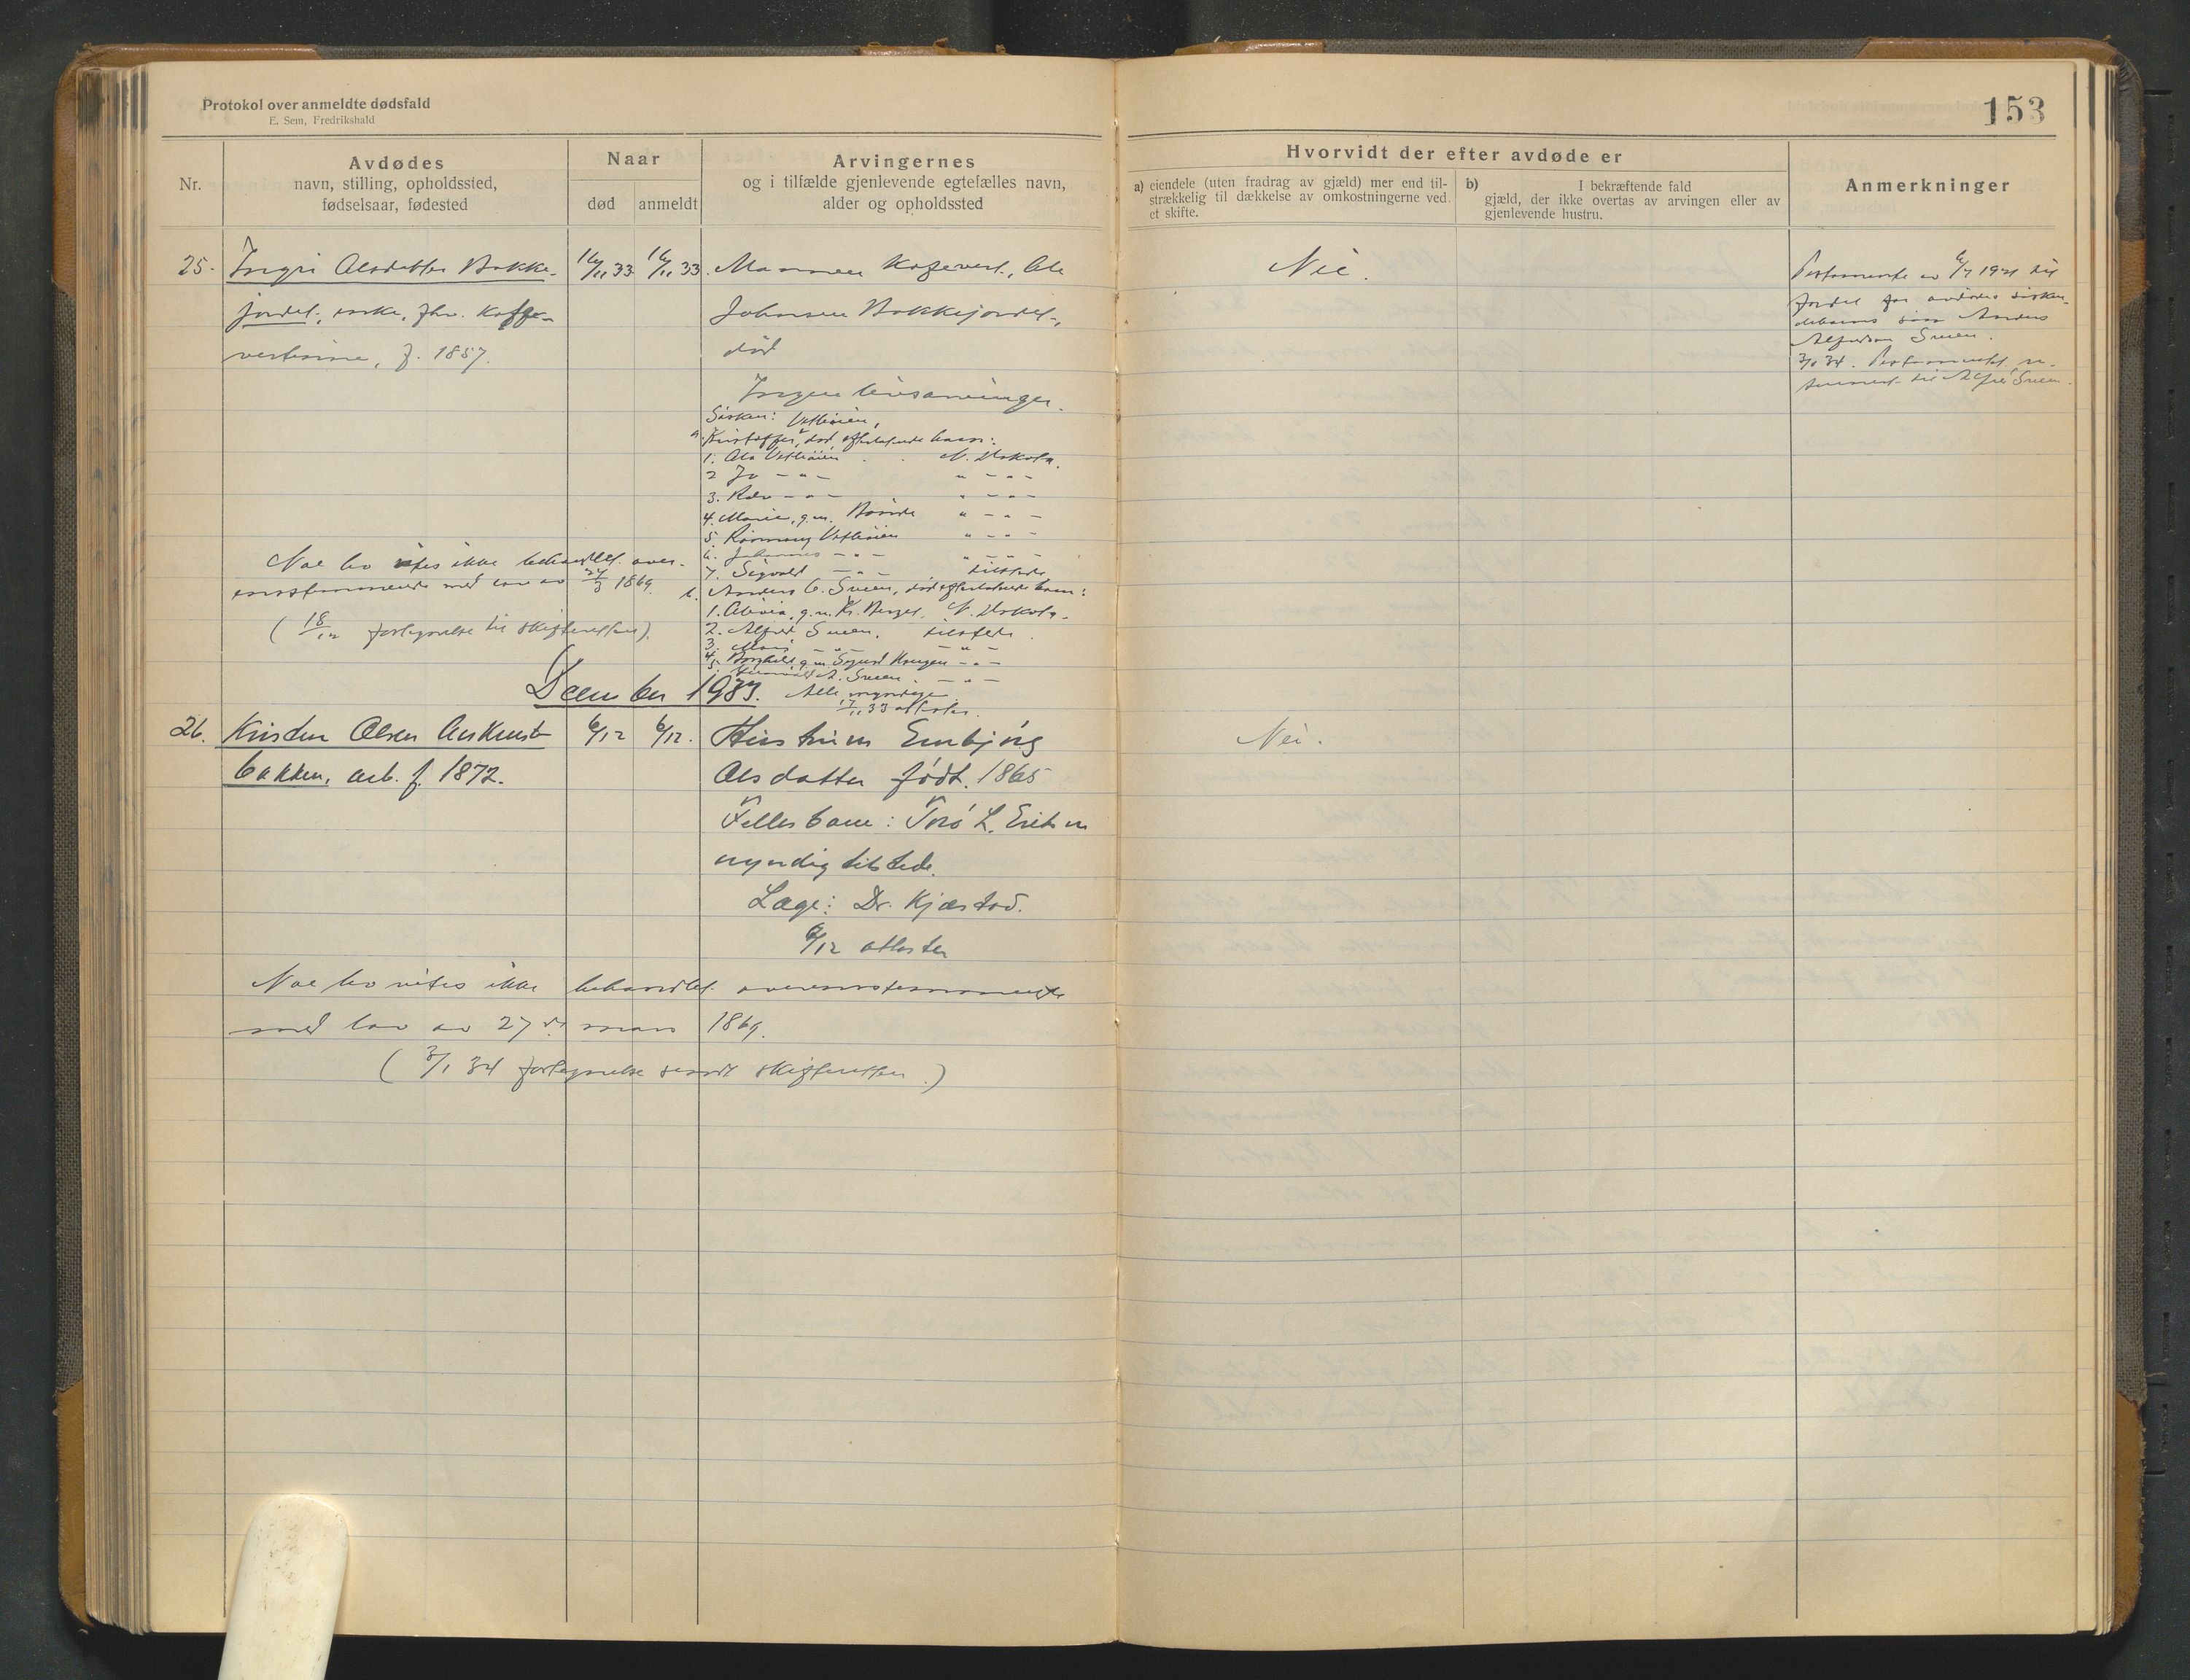 Protokol over anmeldte dødsfald
E. Sem, Fredrikshald
153
Nr.
Avdødes
navn, stilling, opholdssted,
fødselsaar, fødested
Naar
død
anmeldt
Arvingernes
og i tilfælde gjenlevende egtefælles navn,
alder og opholdssted
Hvorvidt der efter avdøde er
a) eiendele (uten fradrag av gjæld) mer end til-
strækkelig til dækkelse av omkostningerne ved
et skifte.
b) I bekræftende fald
gjæld, der ikke overtas av arvingen eller av
gjenlevende hustru.
Anmerkninger
25. Ingri Olsdatter Bakke-
jordet, enke, fhv. Kaffe-
vertinne, f. 1857.
16/11 33 16/11 33.
Mannen Kafevert, Ole
Johnsen Bakkejordet,
død
Ingen livsarvinger.
Sisken:
a. Kristoffer, død, efterlatende barn:
1. Ola N. Uskola.
2 Jo — " — " — " —
3. — " — " — " —
4. Marie, g.m. " — " —
5. " — " —
6. Johannes — " — " — " —
7. Sigvald — " — tilstede
b. Anders O. Sveen, død efterlatende barn:
1. Olivia, g.m. Kr. Berget, N. Uskola.
2. Alfred Sveen, tilstede.
3. — " — — " —
4. Borghild g.m. Sigurd Haugen — " —
5. A. Sveen. — " —
Alle myndige
17/11 33 attester.
Nei.
Testamente av 1921 til
fordel for avdødes sisken-
debarns sønn Anders
Alfredsen Sveen.
3/1 34. Testamentet re-
turnert til Alfred Sveen.
Noe bo vites ikke behandlet over-
ensstemmende med lov av 27/3 1869.
( 18/12 fortegnelse til skifteretten).
December 1933.
26. Kristen Olsen
bakken, arb. f. 1872.
6/12 6/12.
Hustruen Embjørg
Olsdatter født. 1865
Fellesbarn: L. Eriksen
myndig tilstede.
Læge: Dr. Kjæstad.
6/12 attester
Nei.
Noe bo vites ikke behandlet overensstemmende
med lov av 27de mars 1869.
( 3/1 34 fortegnelse sendt skifteretten.)